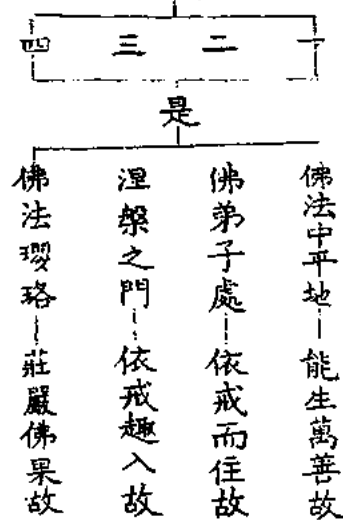 一 二 三 四
是
佛法中平地——能生萬善故
佛弟子處——依戒而住故
涅槃之門——依戒趣入故
佛法瓔珞——莊嚴佛果故